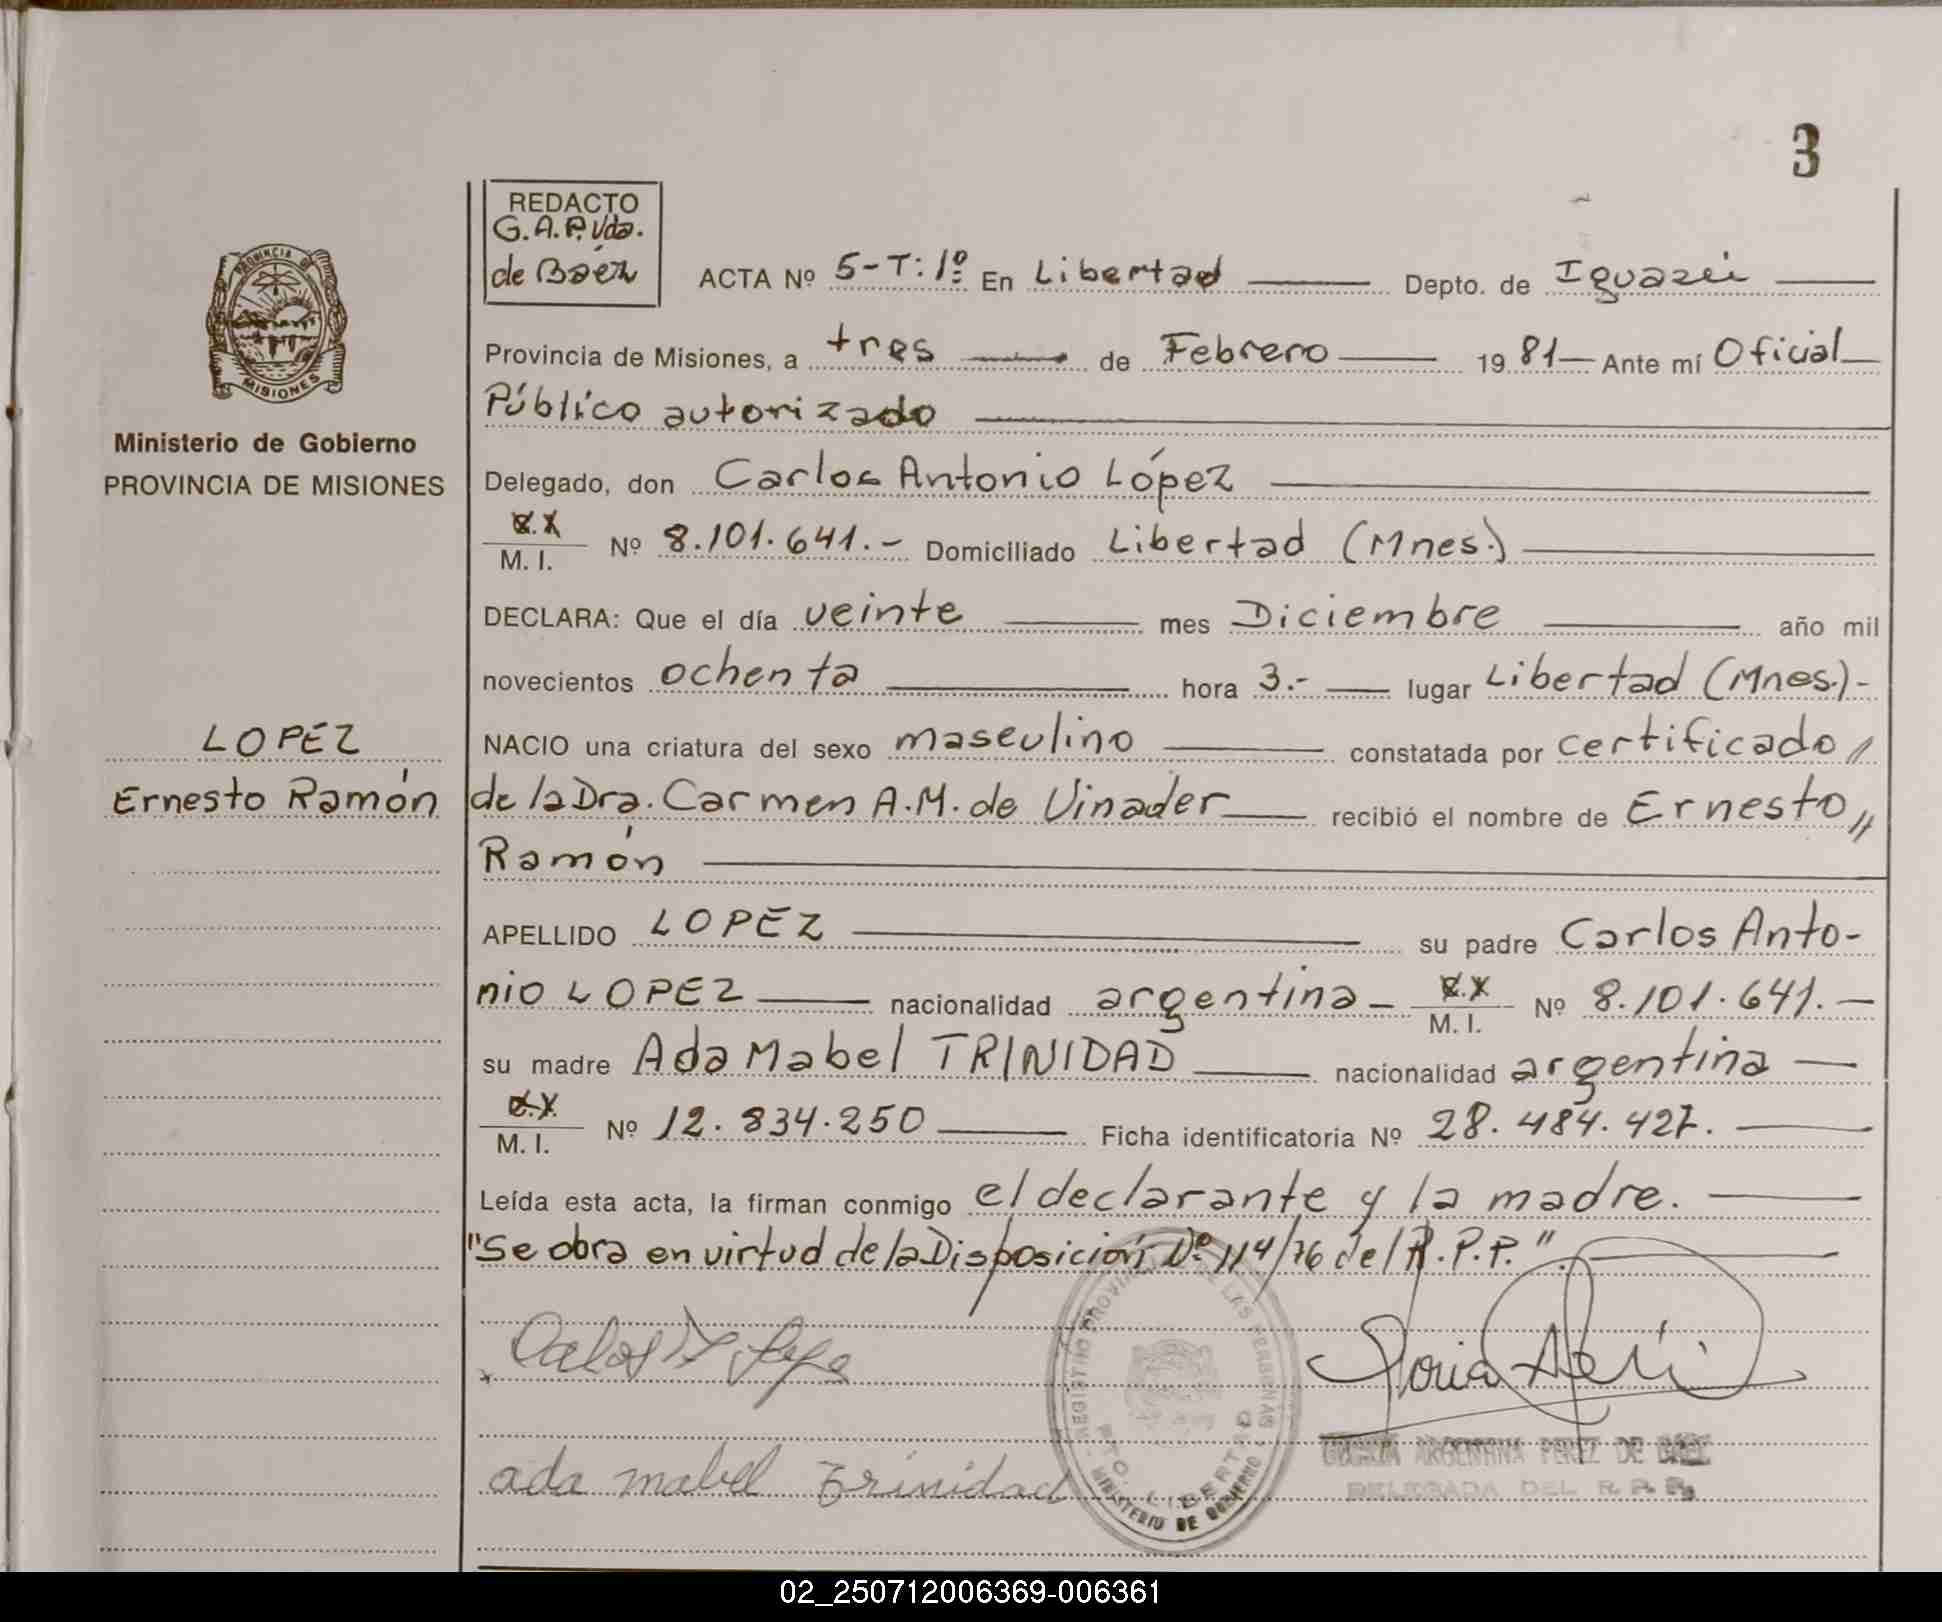 3
REDACTO
G.A.P. Vda.
de Baéz
ACTA Nº 5-T:1º En Libertad Depto. de Iguazú
PROVINCIA DE
MISIONES
Provincia de Misiones, a tres de Febrero 1981 Ante mí Oficial
Público autorizado
Ministerio de Gobierno
PROVINCIA DE MISIONES
Delegado, don Carlos Antonio López
M. I. Nº 8.101.641.- Domiciliado Libertad (Mnes.)
DECLARA: Que el día veinte mes Diciembre año mil
novecientos ochenta hora 3.- lugar Libertad (Mnes.)-
LOPEZ
Ernesto Ramón
NACIO una criatura del sexo masculino constatada por certificado //
de la Dra. Carmen A.M. de Vinader recibió el nombre de Ernesto //
Ramón
APELLIDO LOPEZ su padre Carlos Anto-
nio LOPEZ nacionalidad argentina - M. I. Nº 8.101.641.-
su madre Ada Mabel TRINIDAD nacionalidad argentina
M. I. Nº 12.834.250 Ficha identificatoria Nº 28.484.427.
Leída esta acta, la firman conmigo el declarante y la madre.
"Se obra en virtud de la Disposición Nº 114/76 del R.P.P."
REGISTRO PROVINCIAL DE LAS PERSONAS
PTO. LIBERTAD
MINISTERIO DE GOBIERNO
ada mabel trinidad
ARGENTINA PEREZ DE BAEZ
DELEGADA DEL R. P. P.
02_250712006369-006361